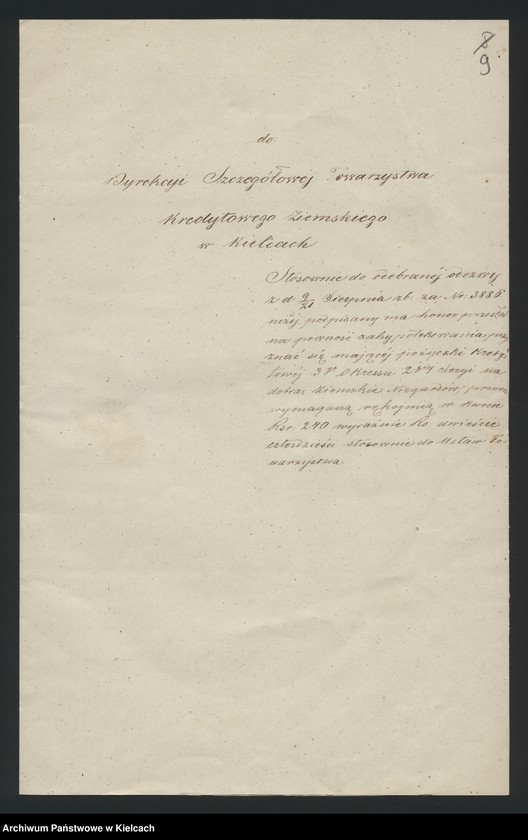 8
9
do
Dyrekcyi Szczegółowéj Towarzystwa
Kredytowego Ziemskiego
w Kielcach
Stosownie do odebranéj odezwy
z d 9/21 Sierpnia rb. za Nr. 3885
niżéj podpisany ma honor
na pewność zahypotekowania
znać się mającéj pożyczki Kredy
towéj 3go Okressu 2éj Seryi na
dobra Ziemskie
wymaganą rękojmią w kwocie
Rsr. 240 wyraźnie Rs. dwieście
czterdzieści stosownie do Ustaw To
warzystwa.
Archiwum Państwowe w Kielcach